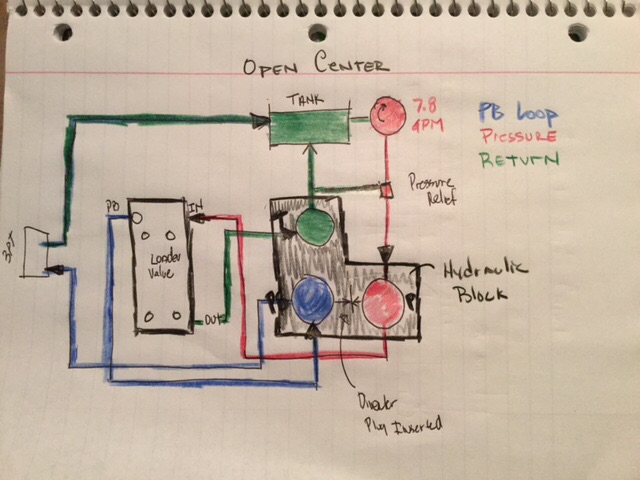 OPEN CENTER
TANK
7.8
GPM
PB LOOP
PRESSURE
RETURN
Pressure
Relief
PB
IN
3PH
Loader
Valve
OUT
P
Hydraulic
Block
Diverter
Plug Inserted